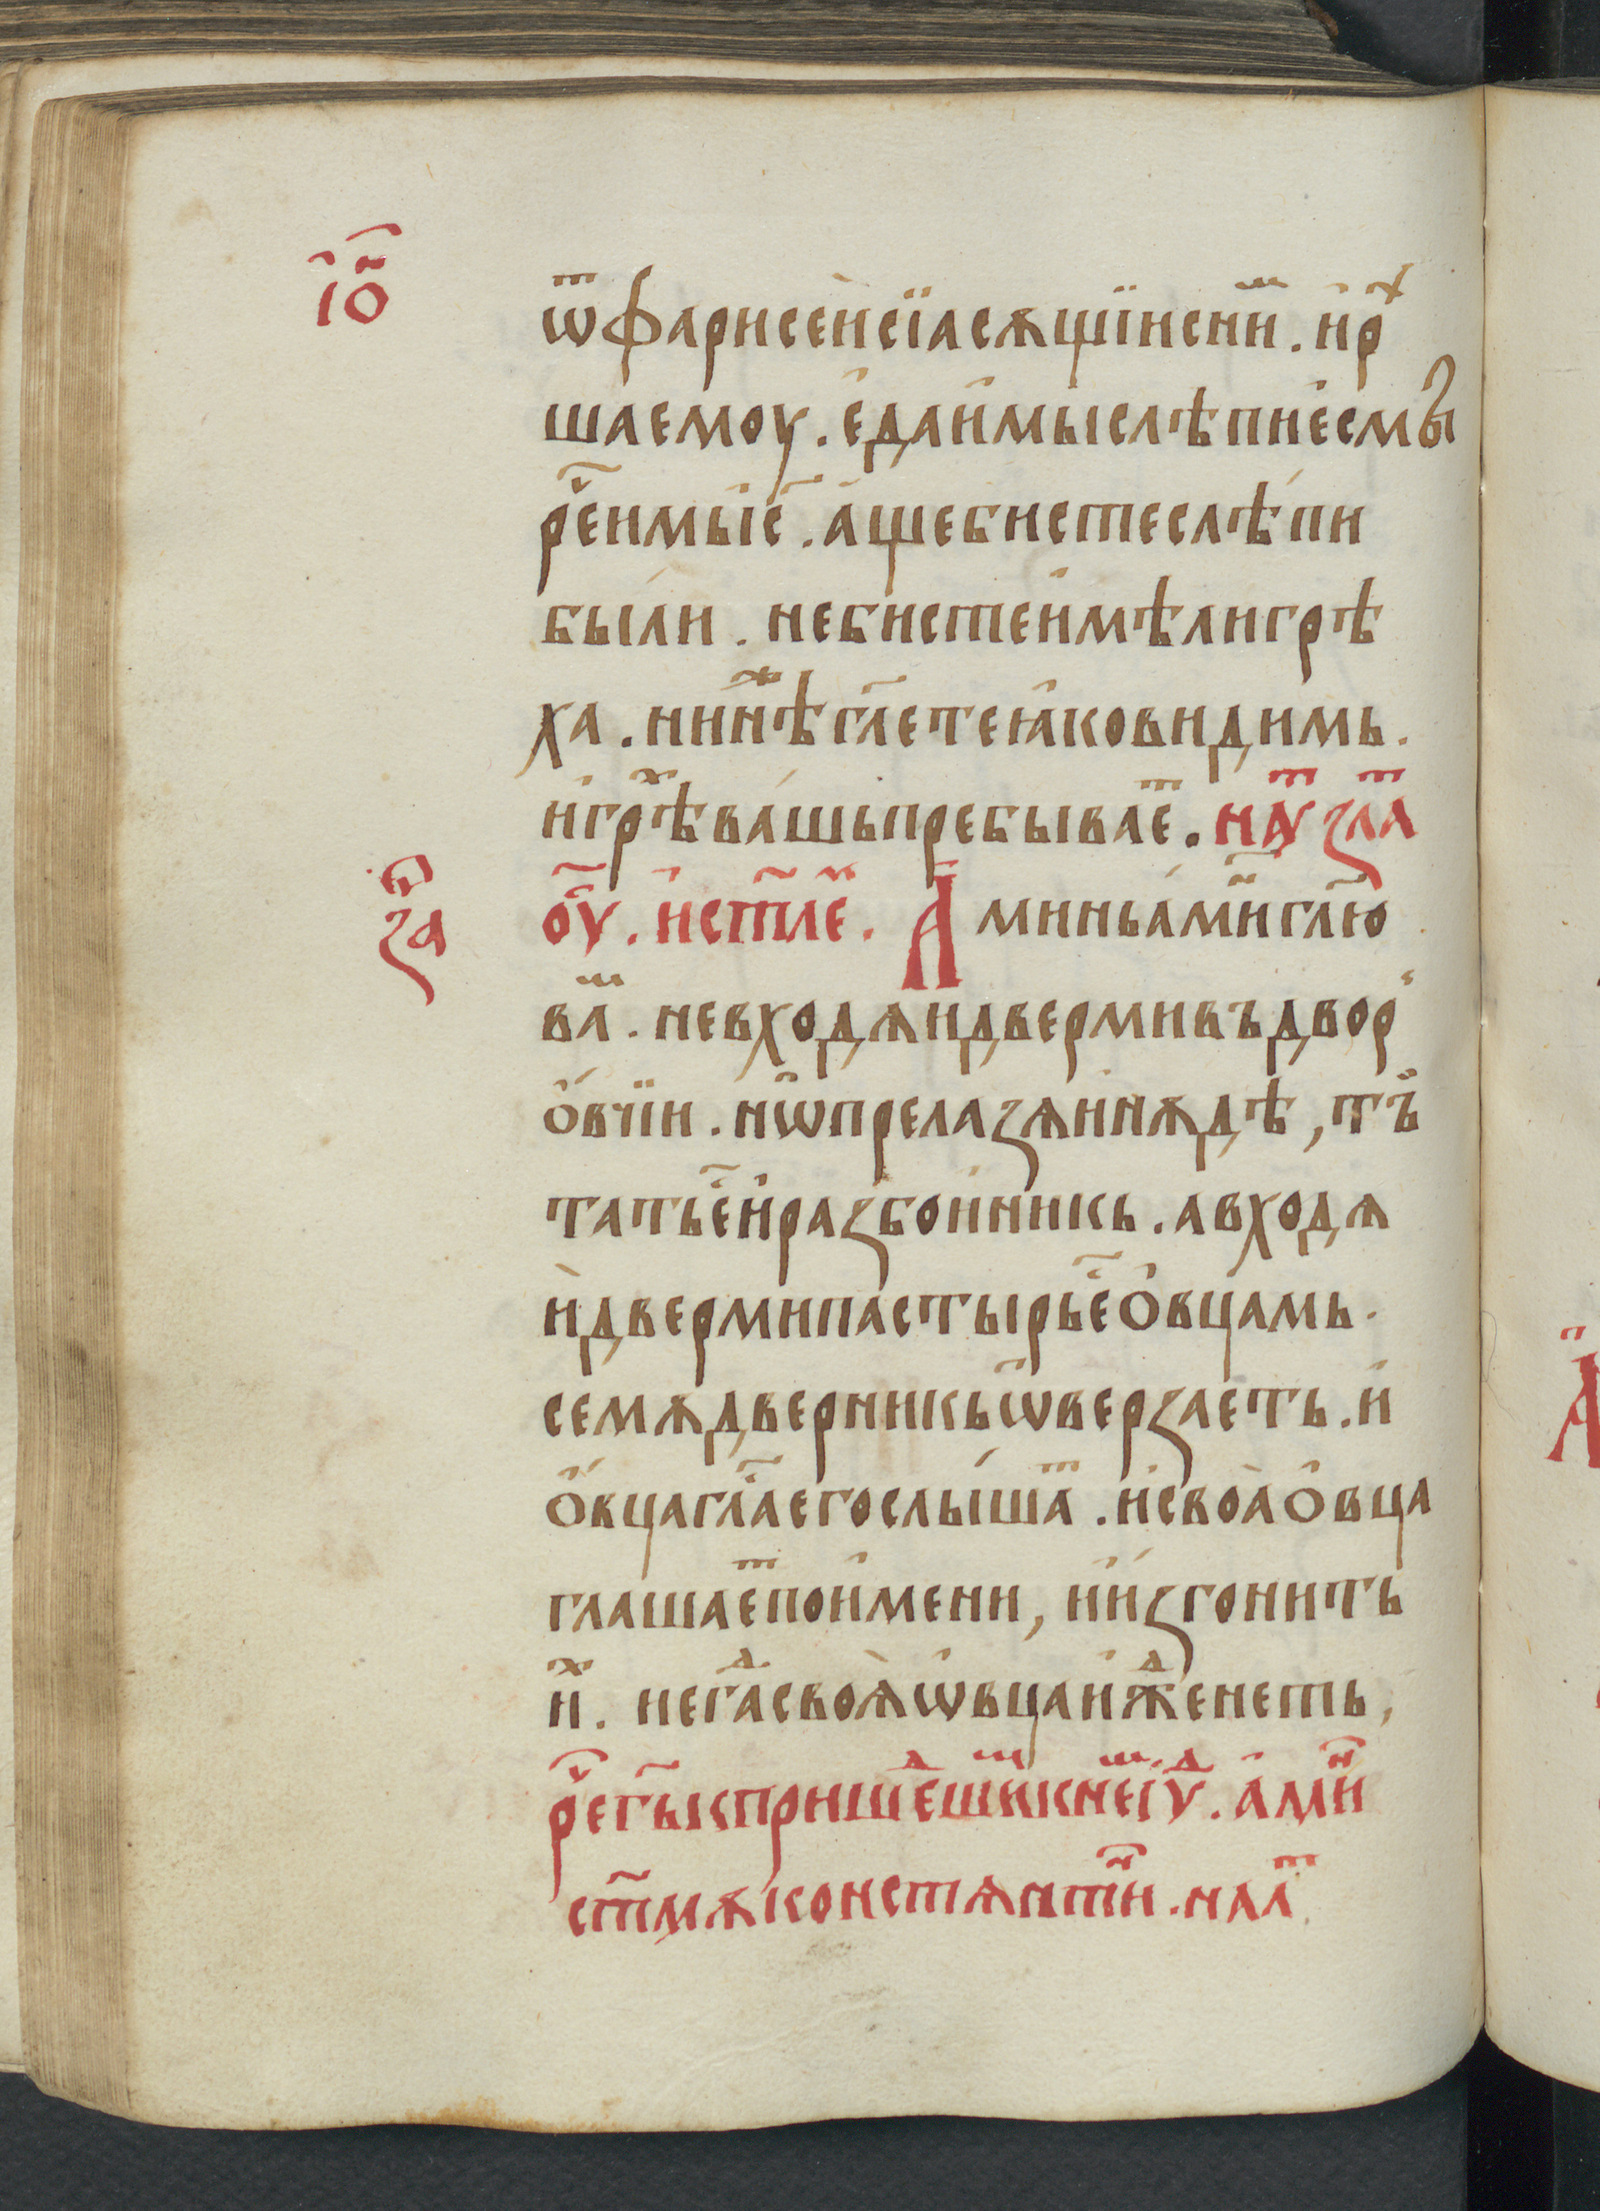 і҃ѡ҃
ѿфарисеѝсїасѫщїисни́м . и҆рѣ́х
шаемоу . е҆даи҆мы́слѣпїиесмы̀
рече́имыі҆с҃ . а҆щебистеслѣ́пи
бы́ли . небистеи҆мѣлигрѣ
ха . нинꙗ́жѣ гл҃етеꙗ҆ковидимь .
и҆грѣⷯва́шьпребываеⷮ . наⷮ҇ злаⷮ
оу҃ . и҆ст҃ле҃ . А҆миньа́ми҃нгл҃ю
за л҃д
ваⷨ . невходѧидвермивъдворⸯ
о҆́вчїи . нѡ҆прелазѧиинѫдѣ , тъи҆
татье҆сⷮи҆разбои́никь . авходѧ
ѝдвермипастырье҆сⷮо҆вца́мь .
семѫдверникьѿверзаеть . и҆
о҆́вцагла́саегослы́шаⷮ . и҆своѧ̀о҆вца
глашаеⷮпои҆мени , ии҆́згонить
иⷯ . иегⷣасвоѧ̀ѡ҆вцаи҆жⷣенеть ,
рече҃гь҃кпришеⷣшиⷨкнемⷨі҆уⷣ . а҆миⷩ҇
ст҃мѫконстѧнтиⷩ҇ . налⷮ